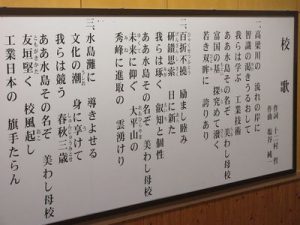 校歌
作詞 十二村 哲
作曲 塩谷 純一
一、高梁川の 流れの岸に
智識の渇きうるおして
我らは学ぶ 工業技術
ああ水島その名ぞ 美わし母校
富国の基 探究めて遙く
若き双眸に 誇りあり
二、百折不撓 励まし睦み
研鑚思索 日に新た
我らは琢く 叡知と個性
ああ水島その名ぞ 美わし母校
未来に仰ぐ 大平山の
秀峰に進取の 雲湧けり
三、水島灘に 導きよせる
文化の潮 身に享けて
我らは競う 春秋三歳
ああ水島その名ぞ 美わし母校
友垣堅く 校風起し
工業日本の 旗手たらん